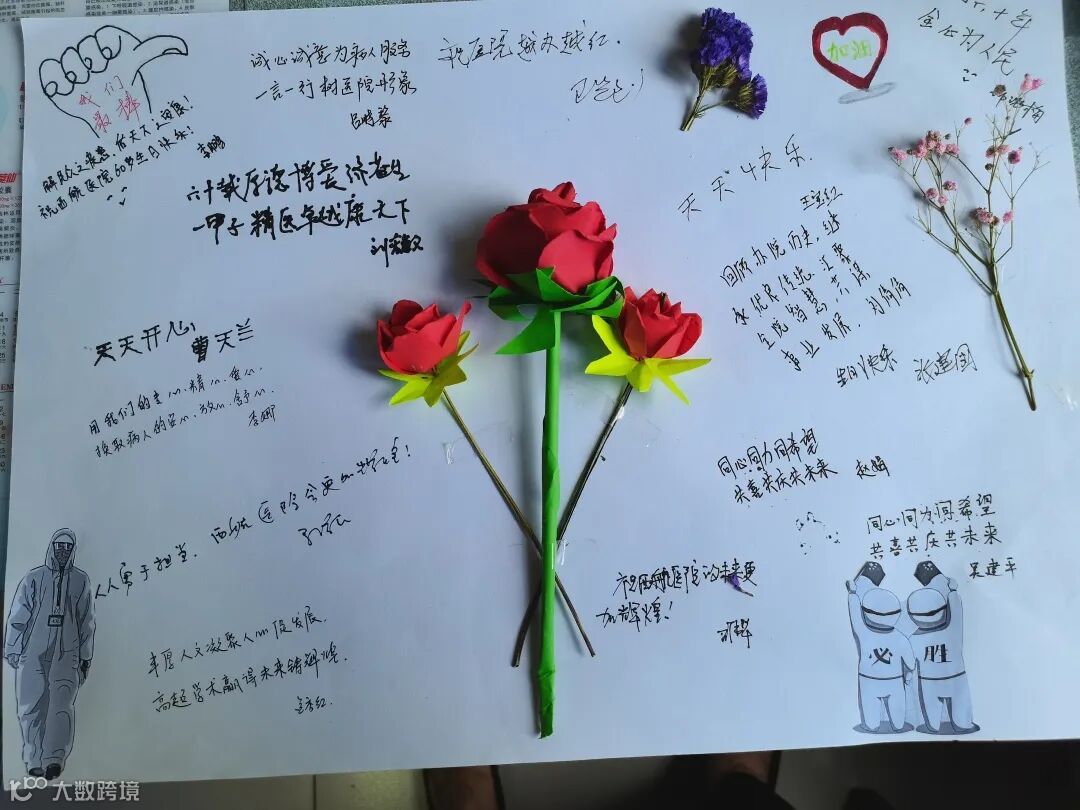 我们
最棒
解民众之疾患,看天下之娅康!
祝西航医院60岁生日快乐!
李鹏
诚心诚意为病人服务
一言一行树医院形象
吕晓蓉
祝医院越办越红.
加油
全心为人民
六十载厚德博爱济苍生
一甲子精医卓越康天下
刘
天天快乐.
王红
回顾办院历史,继
承优良传统,汇聚
全院智慧,共谋
事业发展.刘倩倩
生日快乐 张建国
天天开心!
曹天兰
用我们的专心.精心.爱心.
换取病人的安心.放心.舒心.
李娜
人人勇于担当,西航医院会更加辉煌!
同心同力同希望
共喜共庆共未来 赵娟
同心同力同希望
共喜共庆共未来
吴建平
祝西航医院的未来更
加辉煌!
丰厚人文凝聚人心促发展,
高超学术赢得未来铸辉煌.
必 胜
大数跨境